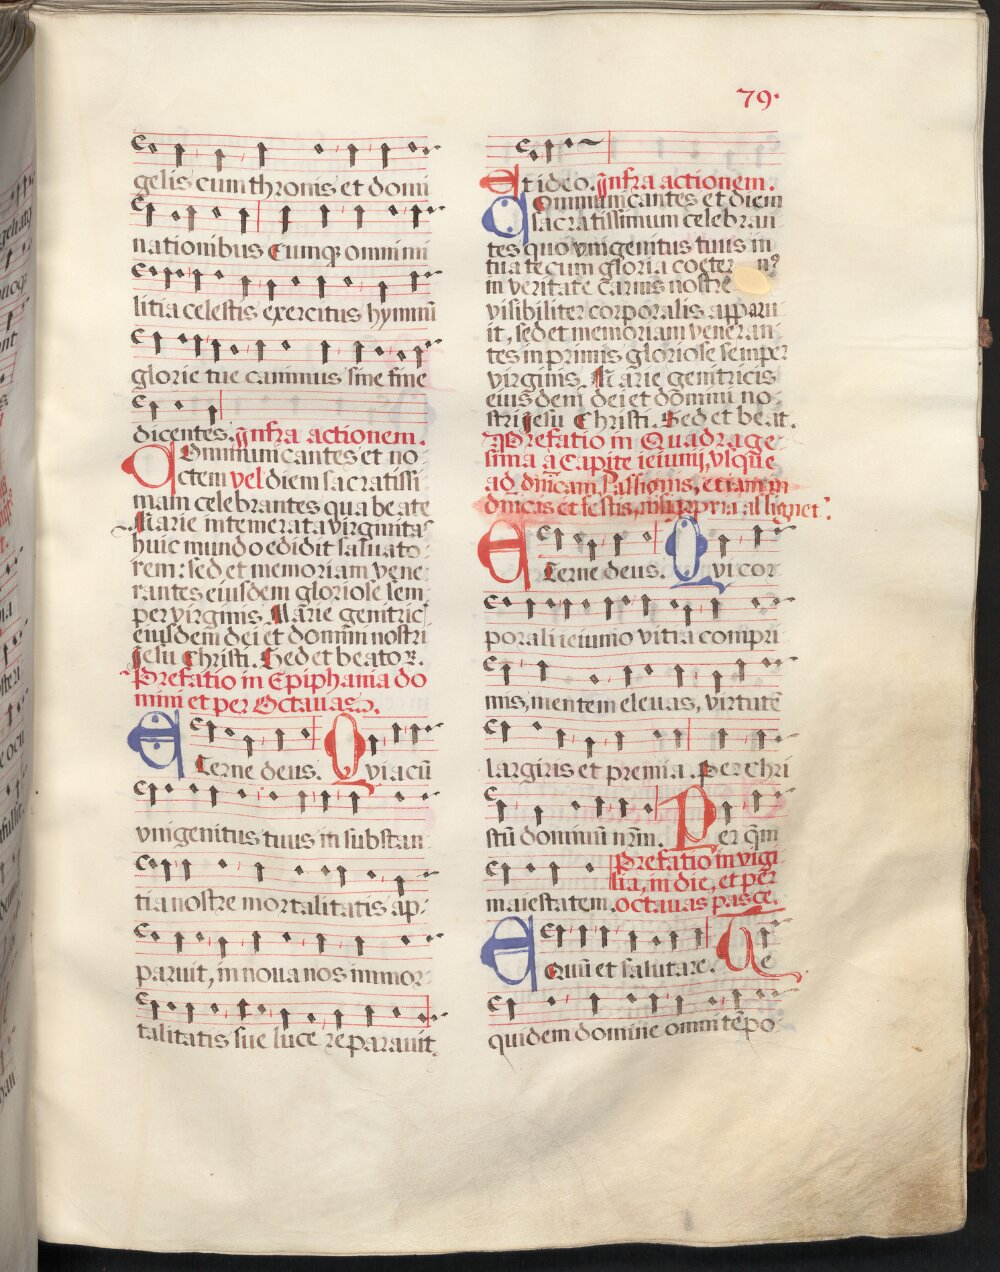 79.
gelis cum thronis et domi
nationibus Cunq̃ omni mi
litia celestis exercitus hymnũ
glorie tue canimus sine fine
dicentes. Infra actionem.
Communicantes et no
ctem vel diem sacratissi
mam celebrantes qua beate
Marie intemerata virginitas
huic mundo edidit saluato
rem: sed et memoriam vene
rantes eiusdem gloriose sem
per virginis Marie genitric̃
eiusdem dei et domini nostri
Jesu Christi. Sed et beatoꝝ.
Prefatio in Epiphania do
mini et per Octauas.
Eterne deus. Quia cũ
vnigenitus tuus in substan
tia nostre mortalitatis ap-
paruit, in noua nos immor
talitatis sue luce reparauit
Et ideo. Infra actionem.
Communicantes et diem
sacratissimum celebran
tes quo vnigenitus tuus in
tua tecum gloria coeter n⁹
in veritate carnis nostre
visibiliter corporalis apparu
it, sed et memoriam veneran
tes in primis gloriose semper
virginis. Marie genitricis
eiusdem dei et domini no
stri Jesu Christi. Sed et beat.
Prefatio in Quadrage
sima a Capite ieiunij, vsque
ad dñicam Passionis, etiam in
dñicis et festis, nisi ꝓpria assignet.
Eterne deus. Qui cor
porali ieiunio vitia compri
mis, mentem eleuas, virtutẽ
largiris et premia. Per Chri
stũ dominũ nr̃m. Per quẽm
maiestatem. Prefatio in vigi
lia, in die, et per
octauas pasce.
Equũ et salutare. Te
quidem domine omni tẽpo